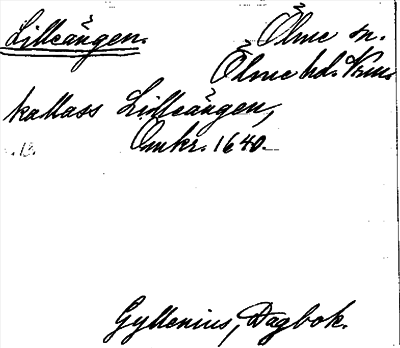 Lilleängen. Ölme sn.
Ölme hd. Vrml.
kallass Lilleängen,
Omkr. 1640.
Gyllenius, Dagbok.